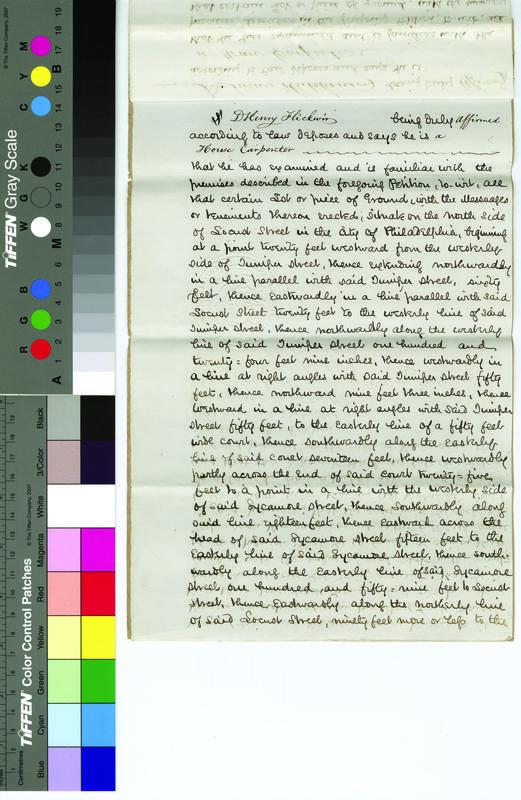 D Henry Flickwir being duly affirmed
according to law deposes and says he is a
House Carpenter
that he has examined and is familiar with the
premises described in the foregoing Petition, to wit, all
that certain Lot or piece of Ground, with the Messuages
or Tenements thereon erected, Situate on the North Side
of Locust Street in the City of Philadelphia, beginning
at a point twenty feet westward from the westerly
side of Juniper Street, thence extending northwardly
in a line parallel with said Juniper Street, sixty
feet, thence Eastwardly in a line parallel with said
Locust Street twenty feet to the westerly line of said
Juniper Street, thence northwardly along the westerly
line of said Juniper Street one hundred and
twenty=four feet nine inches, thence westwardly in
a line at right angles with said Juniper Street fifty
feet, thence northward nine feet three inches, thence
Westward in a line at right angles with said Juniper
Street fifty feet, to the Easterly line of a fifty feet
wide court, thence southwardly along the Easterly
line of said court seventeen feet, thence westwardly
partly across the end of said court twenty=five
feet to a point in a line with the westerly side
of said Sycamore Street, thence Southwardly along
said line eighteen feet, thence eastward across the
head of said Sycamore Street fifteen feet to the
Easterly line of said Sycamore Street, thence south-
wardly along the Easterly line of said Sycamore
Street, one hundred and fifty=nine feet to Locust
Street, thence Eastwardly along the northerly line
of said Locust Street, ninety feet more or less to the
TIFFEN Gray Scale
© The Tiffen Company, 2007
R G B W G K C Y M
A 1 2 3 4 5 6 M 8 9 10 11 12 13 14 15 B 17 18 19
TIFFEN Color Control Patches
© The Tiffen Company, 2007
Centimetres
Blue Cyan Green Yellow Red Magenta White 3/Color Black